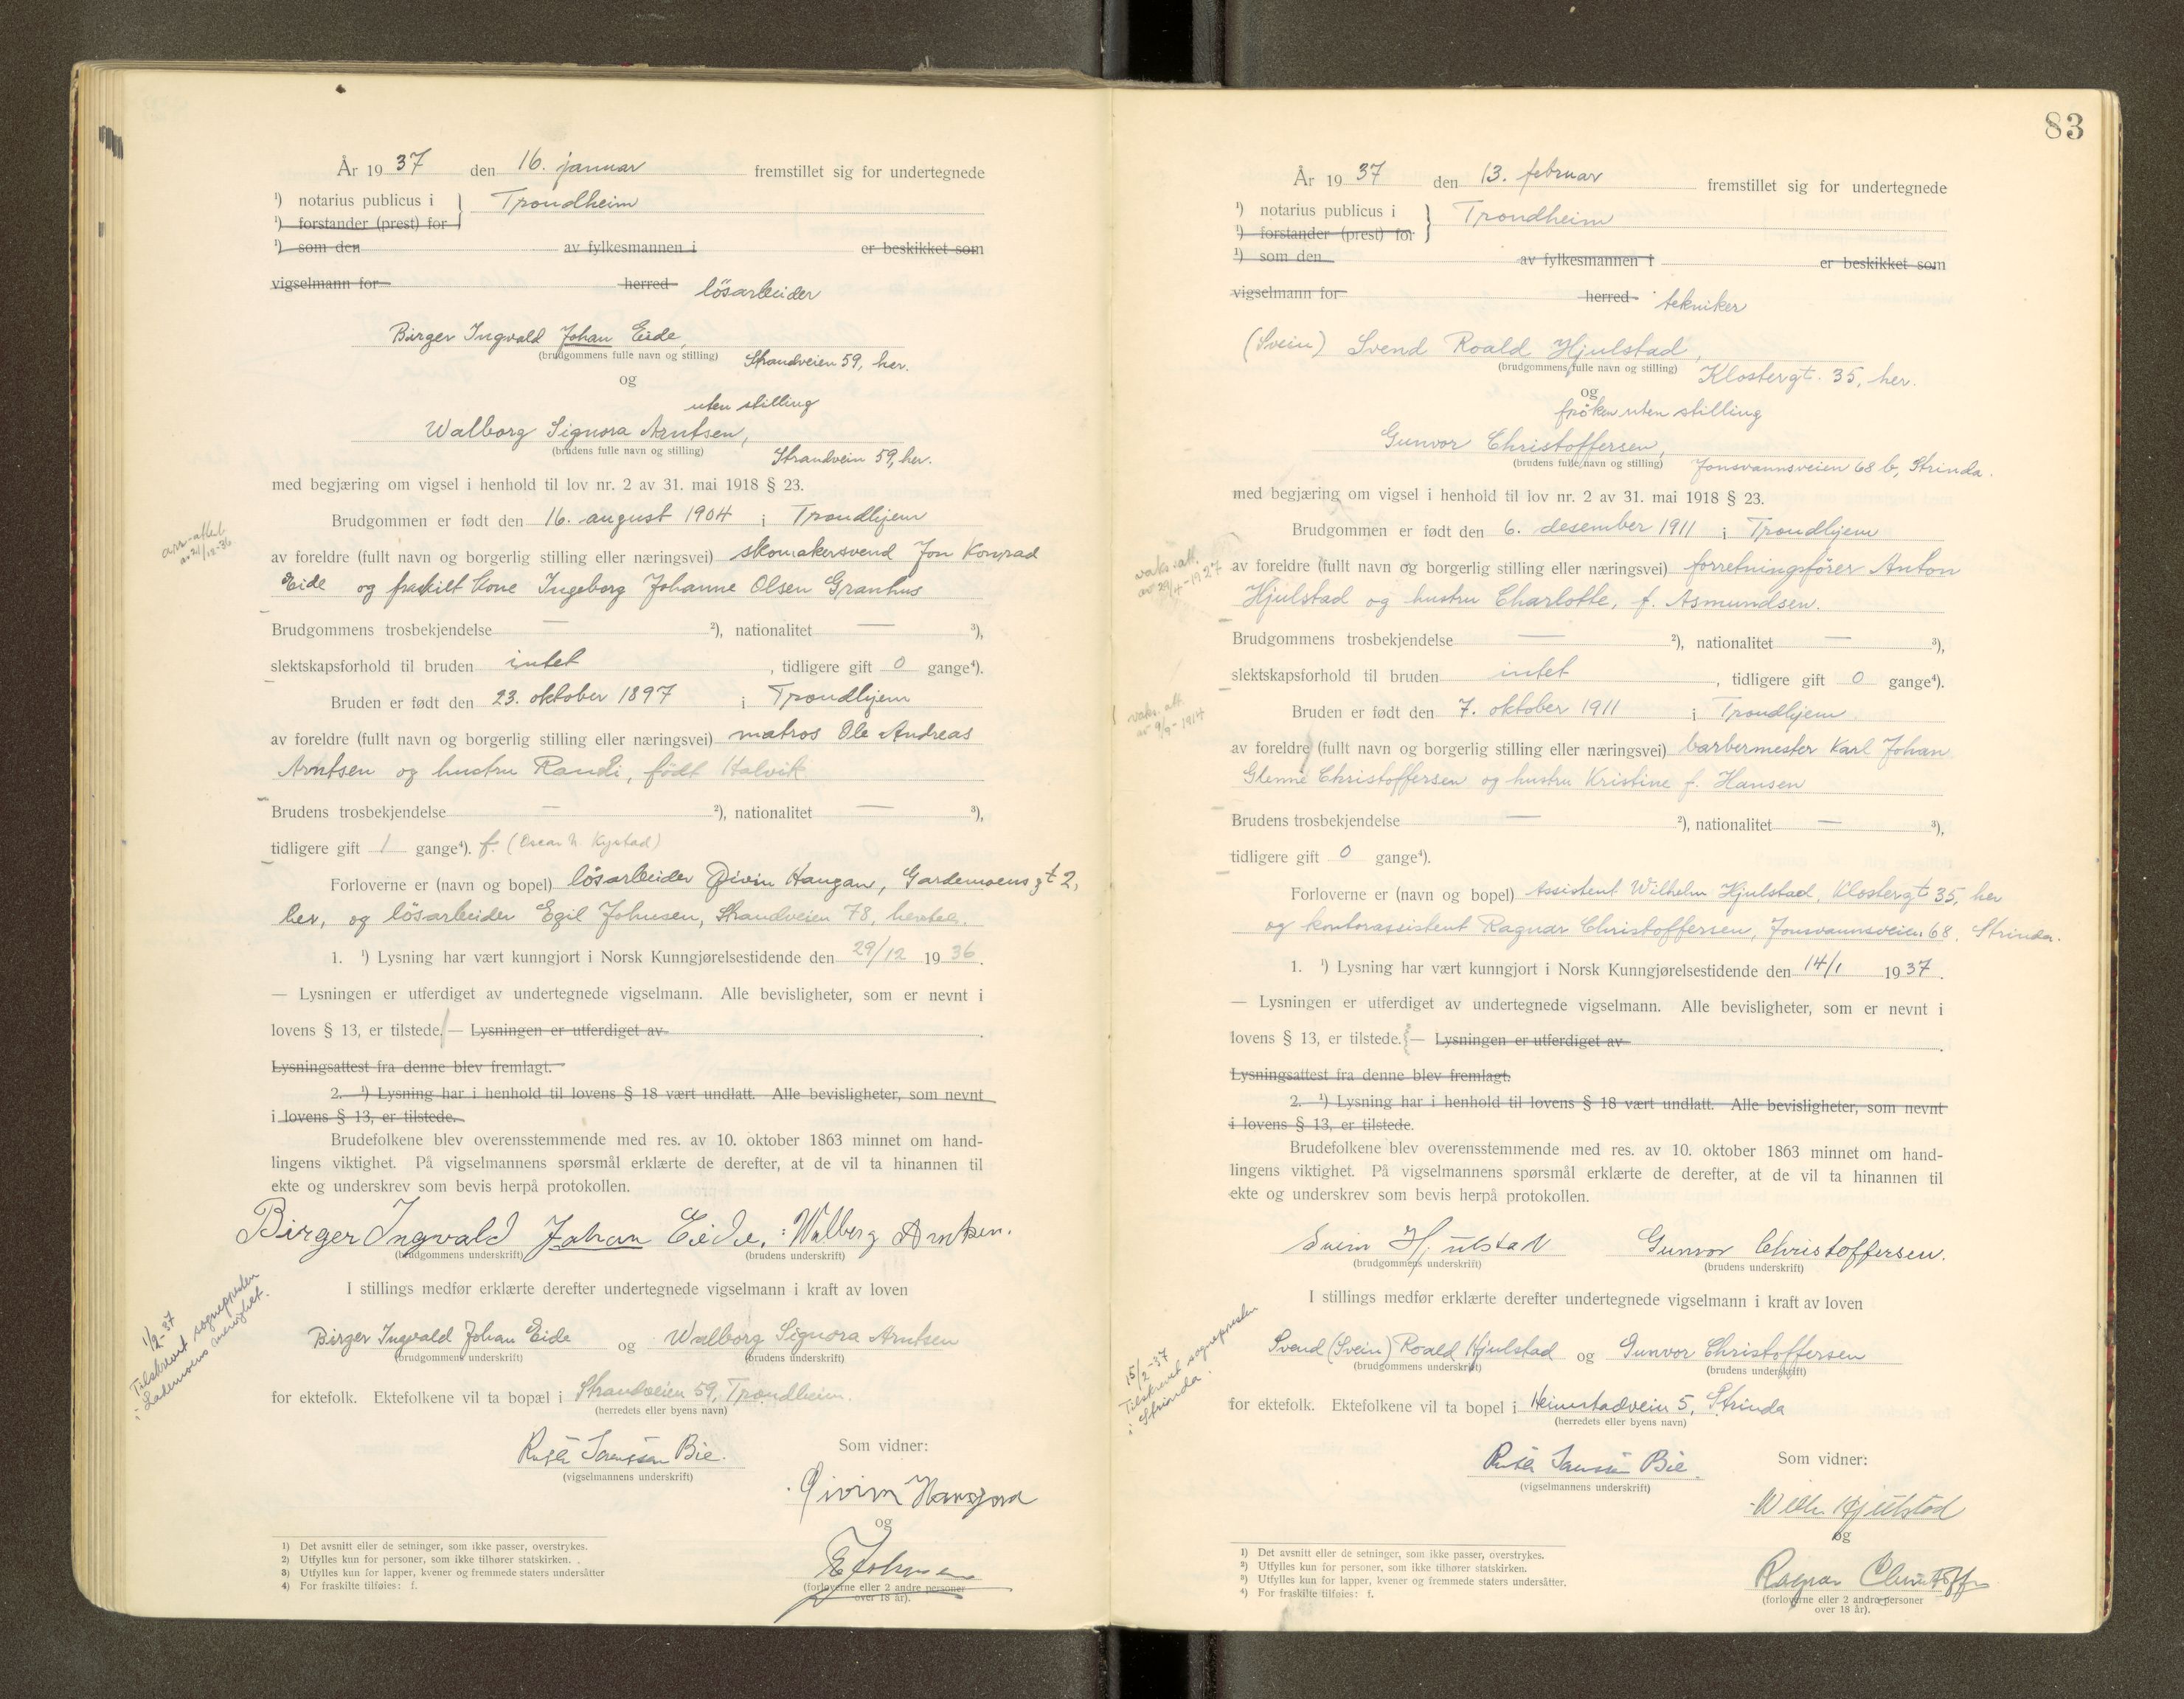 År 1937 den 16. januar fremstillet sig for undertegnede
¹) notarius publicus i } Trondheim
¹) forstander (prest) for
¹) som den av fylkesmannen i er beskikket som
vigselmann for herred løsarbeider
Birger Ingvald Johan Eide,
(brudgommens fulle navn og stilling) Strandveien 59, her.
og
uten stilling
Walborg Signora Arntsen,
(brudens fulle navn og stilling) Strandvein 59, her.
med begjæring om vigsel i henhold til lov nr. 2 av 31. mai 1918 § 23.
Brudgommen er født den 16. august 1904 i Trondhjem
av 21/12-36
av foreldre (fullt navn og borgerlig stilling eller næringsvei) skomakersvend Jon Konrad
Eide og fraskilt kone Ingeborg Johanne Olsen Granhus
Brudgommens trosbekjendelse — ²), nationalitet — ³),
slektskapsforhold til bruden intet, tidligere gift 0 gange⁴).
Bruden er født den 23. oktober 1897 i Trondhjem
av foreldre (fullt navn og borgerlig stilling eller næringsvei) matros Ole Andreas
Arntsen og hustru Randi, født Halvik
Brudens trosbekjendelse — ²), nationalitet — ³),
tidligere gift 1 gange⁴). f. (Oscar N. Kystad)
Forloverne er (navn og bopel) løsarbeider Øivin Haugan, Gardemoens gt 2,
her, og løsarbeider Egil Johnsen, Strandveien 78, hersteds.
1. ¹) Lysning har vært kunngjort i Norsk Kunngjørelsestidende den 29/12 1936.
— Lysningen er utferdiget av undertegnede vigselmann. Alle bevisligheter, som er nevnt i
lovens § 13, er tilstede. — Lysningen er utferdiget av .
Lysningsattest fra denne blev fremlagt.
2. ¹) Lysning har i henhold til lovens § 18 vært undlatt. Alle bevisligheter, som nevnt
i lovens § 13, er tilstede.
Brudefolkene blev overensstemmende med res. av 10. oktober 1863 minnet om hand-
lingens viktighet. På vigselmannens spørsmål erklærte de derefter, at de vil ta hinannen til
ekte og underskrev som bevis herpå protokollen.
Birger Ingvald Johan Eide, Walborg Arntsen.
(brudgommens underskrift) (brudens underskrift)
I stillings medfør erklærte derefter undertegnede vigselmann i kraft av loven
1/2-37
Tilskrevet sognepresten
i Lademoens menighet.
Birger Ingvald Johan Eide og Walborg Signora Arntsen
(brudgommens underskrift) (brudens underskrift)
for ektefolk. Ektefolkene vil ta bopæl i Strandveien 59, Trondheim.
(herredets eller byens navn)
Bie. Som vidner:
(vigselmannens underskrift)
Øivin
og
E Johnsen
(forloverne eller 2 andre personer
over 18 år).
1) Det avsnitt eller de setninger, som ikke passer, overstrykes.
2) Utfylles kun for personer, som ikke tilhører statskirken.
3) Utfylles kun for lapper, kvener og fremmede staters undersåtter
4) For fraskilte tilføies: f.
83
År 1937 den 13. februar fremstillet sig for undertegnede
¹) notarius publicus i } Trondheim
¹) forstander (prest) for
¹) som den av fylkesmannen i er beskikket som
vigselmann for herred tekniker
(Svein) Svend Roald Hjulstad,
(brudgommens fulle navn og stilling) Klostergt. 35, her.
og
frøken uten stilling
Gunvor Christoffersen,
(brudens fulle navn og stilling) Jonsvannsveien 68 b, Strinda.
med begjæring om vigsel i henhold til lov nr. 2 av 31. mai 1918 § 23.
Brudgommen er født den 6. desember 1911 i Trondhjem
vaks. att.
av 29/4-1927
av foreldre (fullt navn og borgerlig stilling eller næringsvei) forretningsfører Anton
Hjulstad og hustru Charlotte, f. Asmundsen.
Brudgommens trosbekjendelse — ²), nationalitet — ³),
slektskapsforhold til bruden intet, tidligere gift 0 gange⁴).
vaks. att.
av 9/9-1914
Bruden er født den 7. oktober 1911 i Trondhjem
av foreldre (fullt navn og borgerlig stilling eller næringsvei) barbermester Karl Johan
Glenne Christoffersen og hustru Kristine f. Hansen
Brudens trosbekjendelse — ²), nationalitet — ³),
tidligere gift 0 gange⁴).
Forloverne er (navn og bopel) Assistent Wilhelm Hjulstad, Klostergt 35, her
og kontorassistent Ragnar Christoffersen, Jonsvannsveien 68, Strinda.
1. ¹) Lysning har vært kunngjort i Norsk Kunngjørelsestidende den 14/1 1937.
— Lysningen er utferdiget av undertegnede vigselmann. Alle bevisligheter, som er nevnt i
lovens § 13, er tilstede. — Lysningen er utferdiget av .
Lysningsattest fra denne blev fremlagt.
2. ¹) Lysning har i henhold til lovens § 18 vært undlatt. Alle bevisligheter, som nevnt
i lovens § 13, er tilstede.
Brudefolkene blev overensstemmende med res. av 10. oktober 1863 minnet om hand-
lingens viktighet. På vigselmannens spørsmål erklærte de derefter, at de vil ta hinannen til
ekte og underskrev som bevis herpå protokollen.
Svein Hjulstad Gunvor Christoffersen.
(brudgommens underskrift) (brudens underskrift)
I stillings medfør erklærte derefter undertegnede vigselmann i kraft av loven
15/2-37
Tilskrevet sognepresten
i Strinda.
Svend (Svein) Roald Hjulstad og Gunvor Christoffersen
(brudgommens underskrift) (brudens underskrift)
for ektefolk. Ektefolkene vil ta bopel i Heimstadveien 5, Strinda
(herredets eller byens navn)
Bie. Som vidner:
(vigselmannens underskrift)
Wilh. Hjulstad
og
Ragnar Christoff
(forloverne eller 2 andre personer
over 18 år).
¹) Det avsnitt eller de setninger, som ikke passer, overstrykes.
²) Utfylles kun for personer, som ikke tilhører statskirken.
³) Utfylles kun for lapper, kvener og fremmede staters undersåtter.
⁴) For fraskilte tilføies: f.